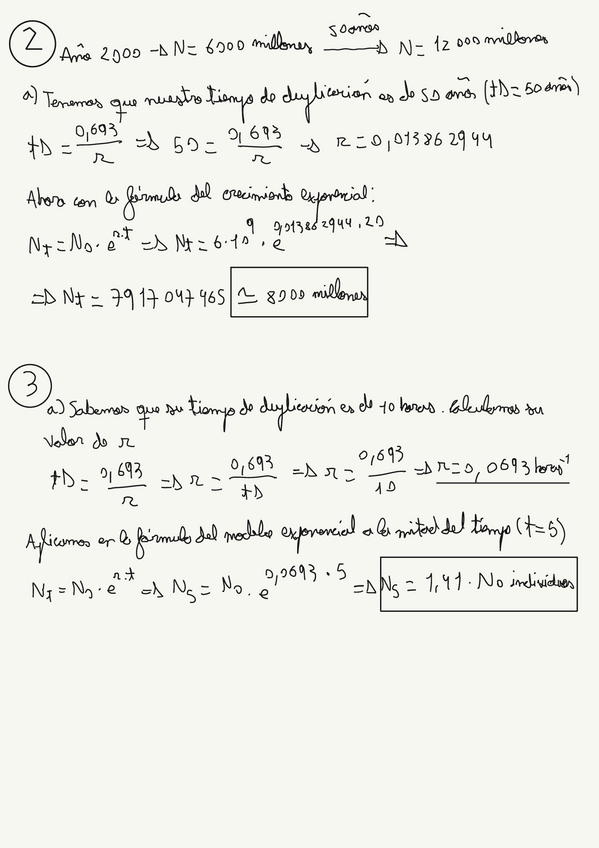 2 Año 2000 → N = 6000 millones —50 años→ N = 12 000 millones
a) Tenemos que nuestro tiempo de duplicación es de 50 años (tD = 50 años)
tD = 0,693/r ⇒ 50 = 0,693/r → r = 0,013862944
Ahora con la fórmula del crecimiento exponencial:
Nt = N0 · e^(r·t) ⇒ Nt = 6·10^9 · e^(0,013862944 · 20) ⇒
⇒ Nt = 7917047465 ≃ 8000 millones
3
a) Sabemos que su tiempo de duplicación es de 10 horas. Calculamos su
valor de r
tD = 0,693/r ⇒ r = 0,693/tD ⇒ r = 0,693/10 ⇒ r = 0,0693 horas^-1
Aplicamos en la fórmula del modelo exponencial a la mitad del tiempo (t = 5)
Nt = N0 · e^(r·t) ⇒ N5 = N0 · e^(0,0693 · 5) ⇒ N5 = 1,41 · N0 individuos